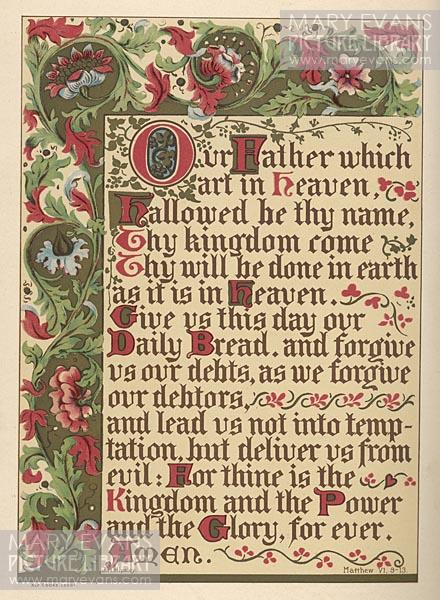 MARY EVANS
PICTURE LIBRARY
www.maryevans.com
Ovr Father which
art in Heaven,
Hallowed be thy name,
Thy kingdom come
Thy will be done in earth
as it is in Heaven.
Give vs this day ovr
Daily Bread. and forgive
vs our debts, as we forgive
our debtors,
and lead vs not into temp-
tation, but deliver vs from
evil: For thine is the
Kingdom and the Power
and the Glory, for ever.
Amen.
Matthew VI, 9-13.
MARY EVANS
PICTURE LIBRARY
www.maryevans.com
MARY EVANS
PICTURE LIBRARY
www.maryevans.com